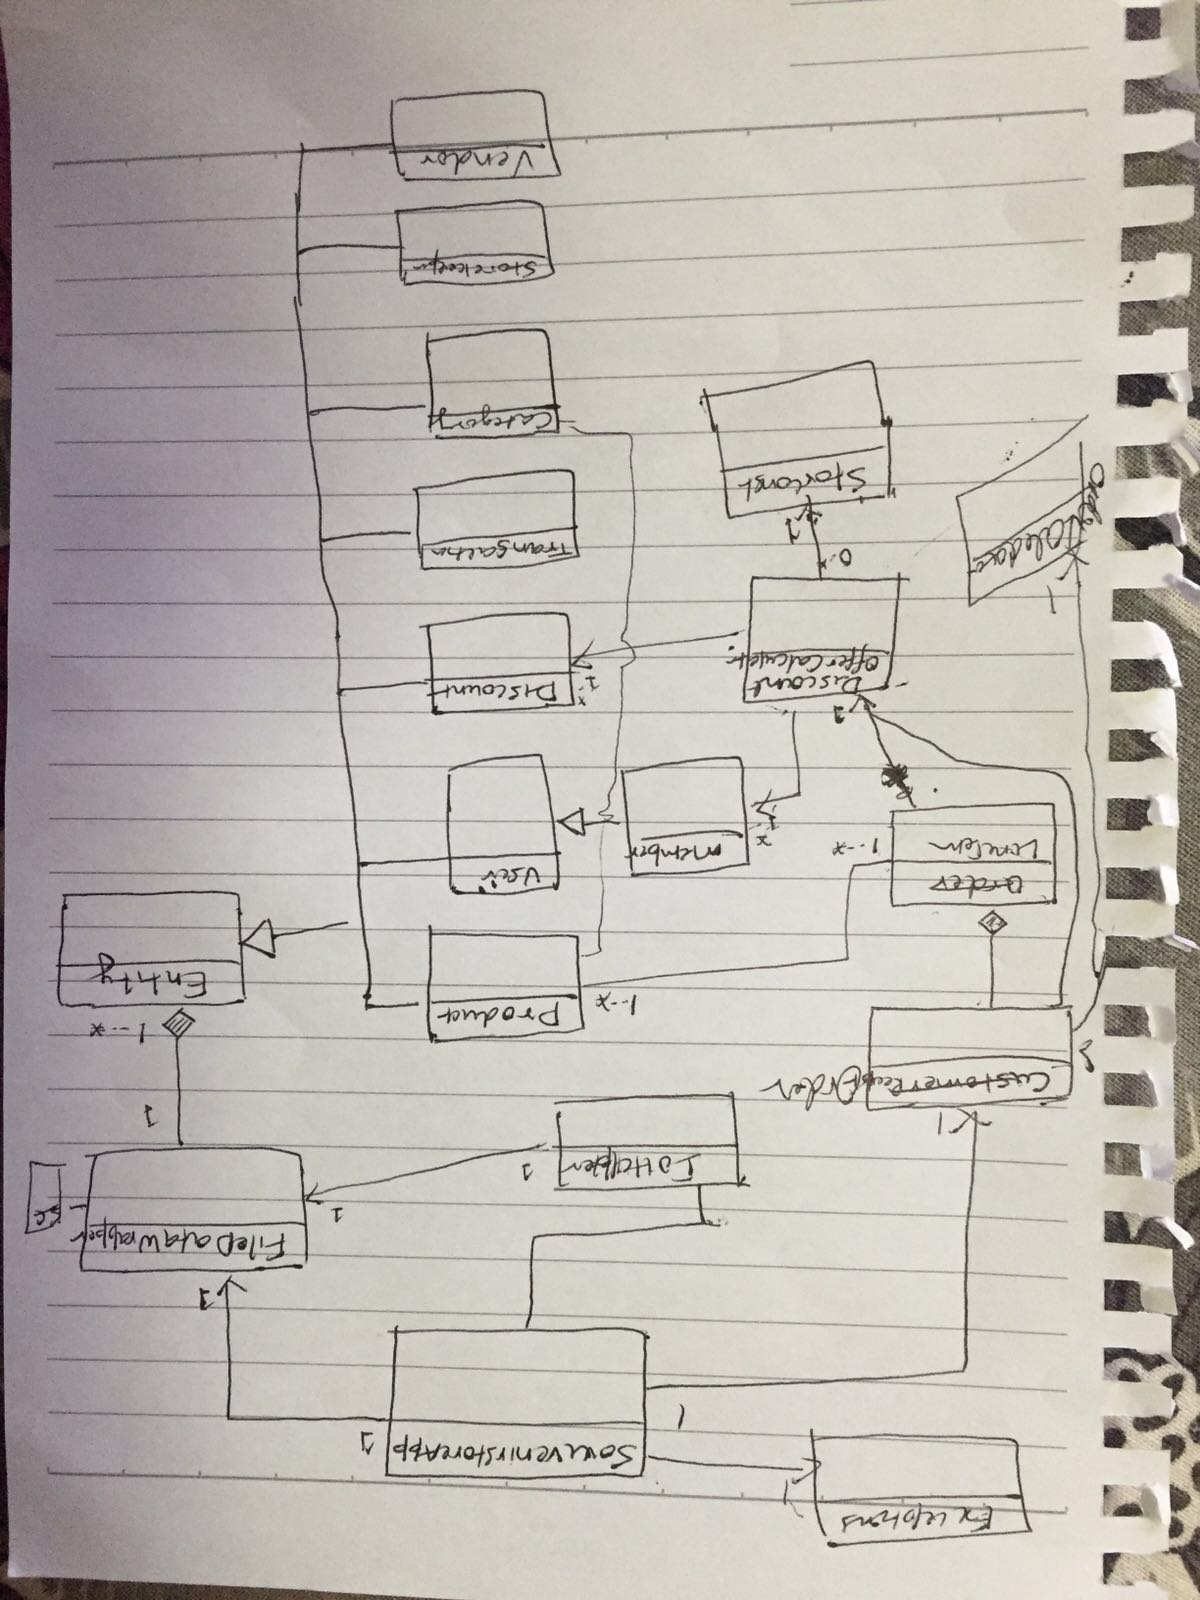 Exceptions
1
SouvenirStoreApp
1
1
1
FileDataWrapper
SC
1
IoHelper
1
1
1
CustomerReceipt Order
Product
1..*
1..*
Entity
Order
LineItem
1..*
Member
User
1..*
1
Discount
OfferCalculator
Discount
1..*
1
Order Validator
Transaction
0..*
1
StorConst
Category
Storekeeper
Vendor